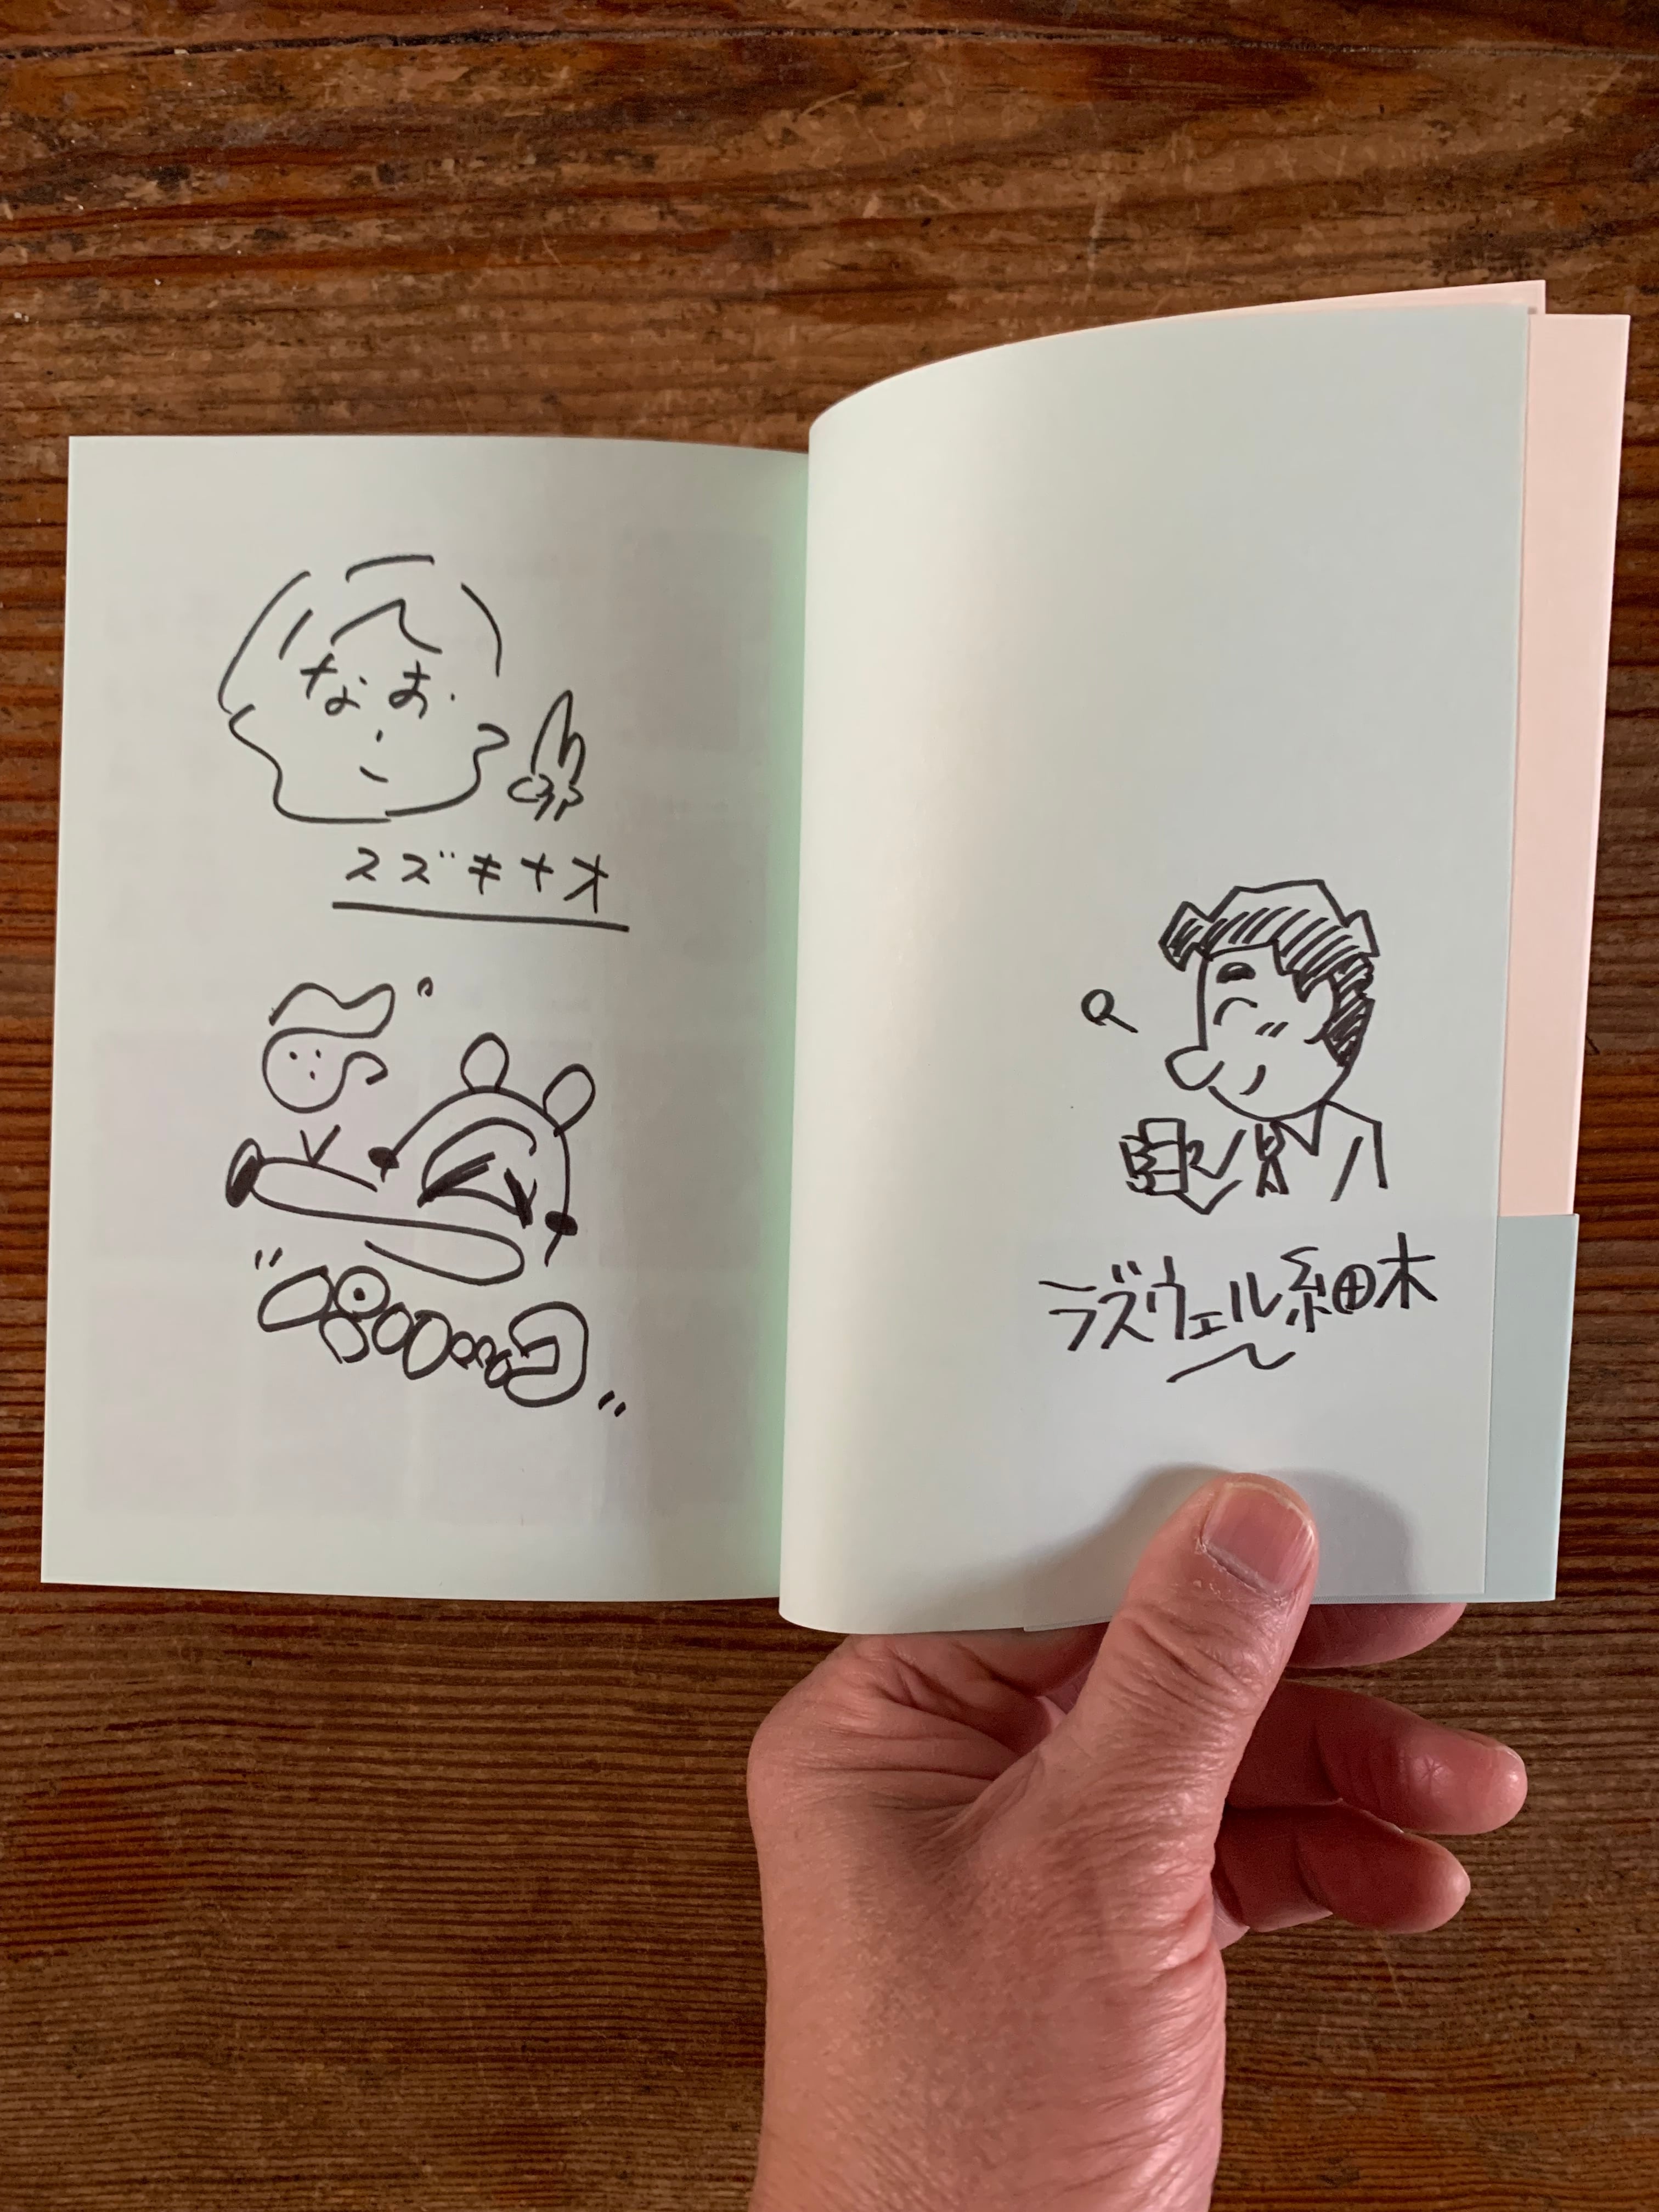 なお
スズキナオ
ラズウェル細木